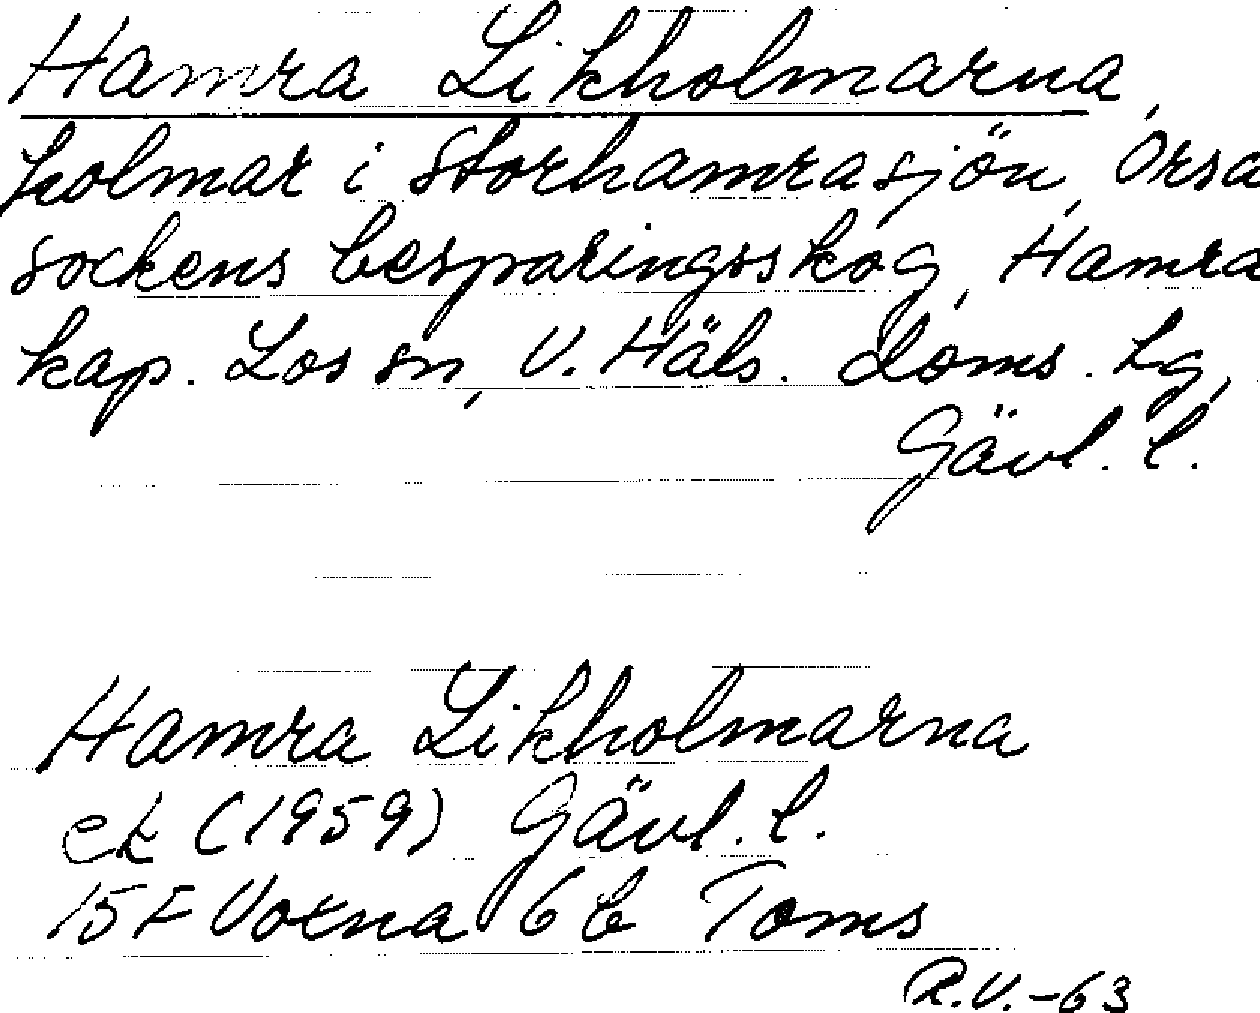 Hamra Likholmarna,
holmar i Storhamrasjön, Orsa
sockens besparingsskog, Hamra
kap. Los sn, V. Häls. doms. lg,
Gävl. l.
Hamra Likholmarna
ek (1959) Gävl. l.
15F Voxna 6b Toms
R.V.-63